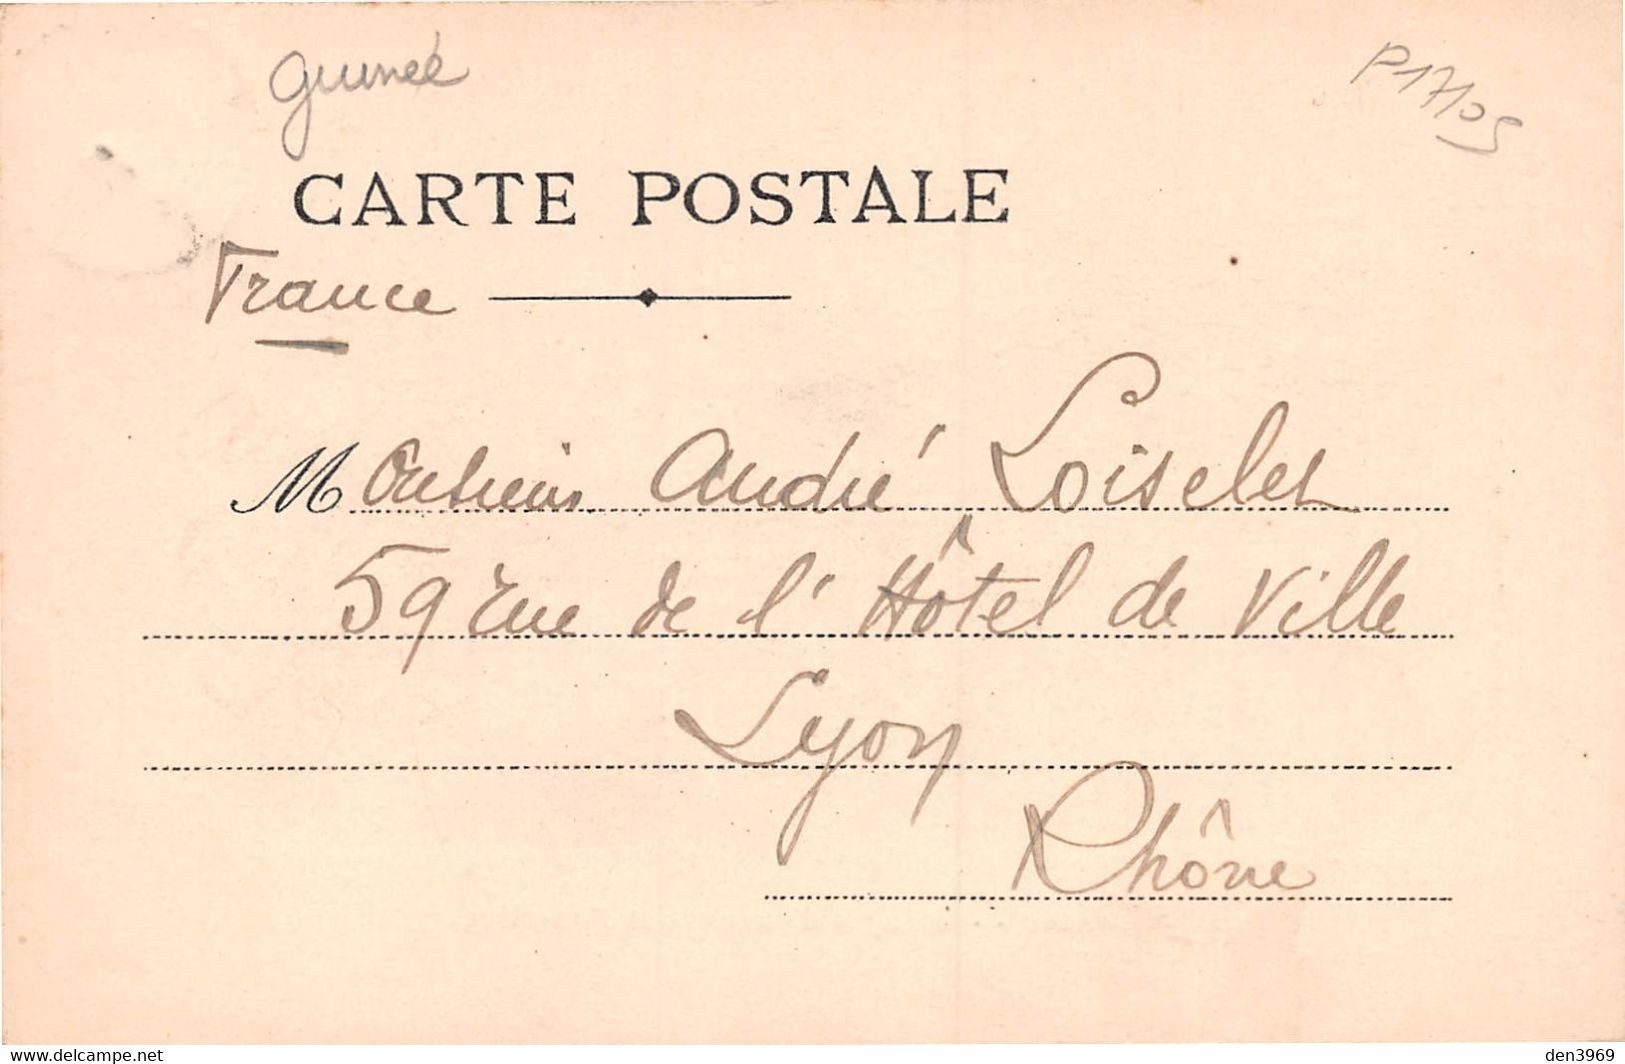 Guinée
P17105
CARTE POSTALE
France
Monsieur André Loiselet
59 rue de l'Hôtel de Ville
Lyon
Rhône
www.delcampe.net
den3969